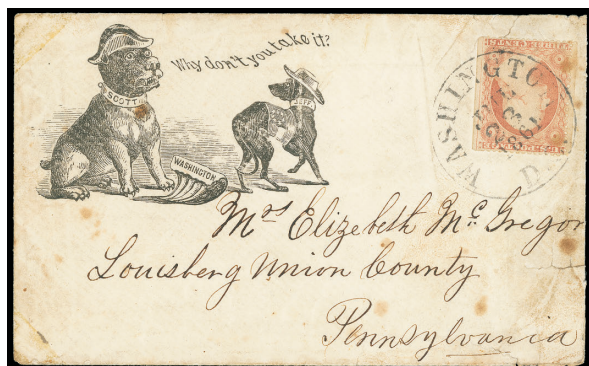 Why don't you take it?
SCOTT
JEFF
WASHINGTON
WASHINGTON
1861
Mrs Elizabeth Mc Gregor
Louisberg Union County
Pennsylvania